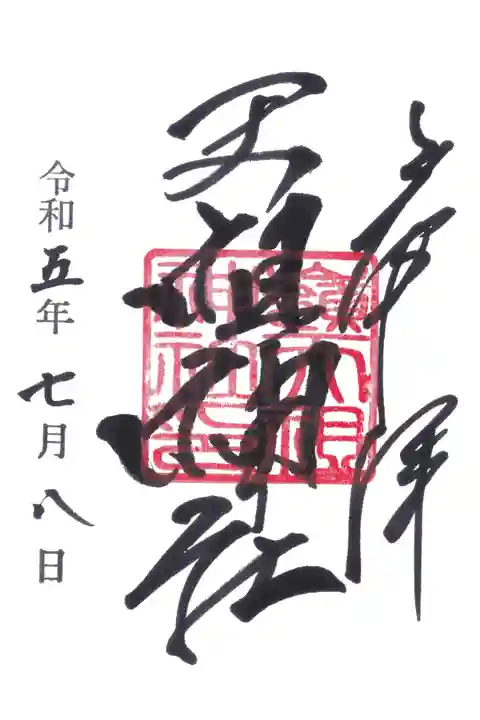 奉拝
天祖神社
令和五年七月八日